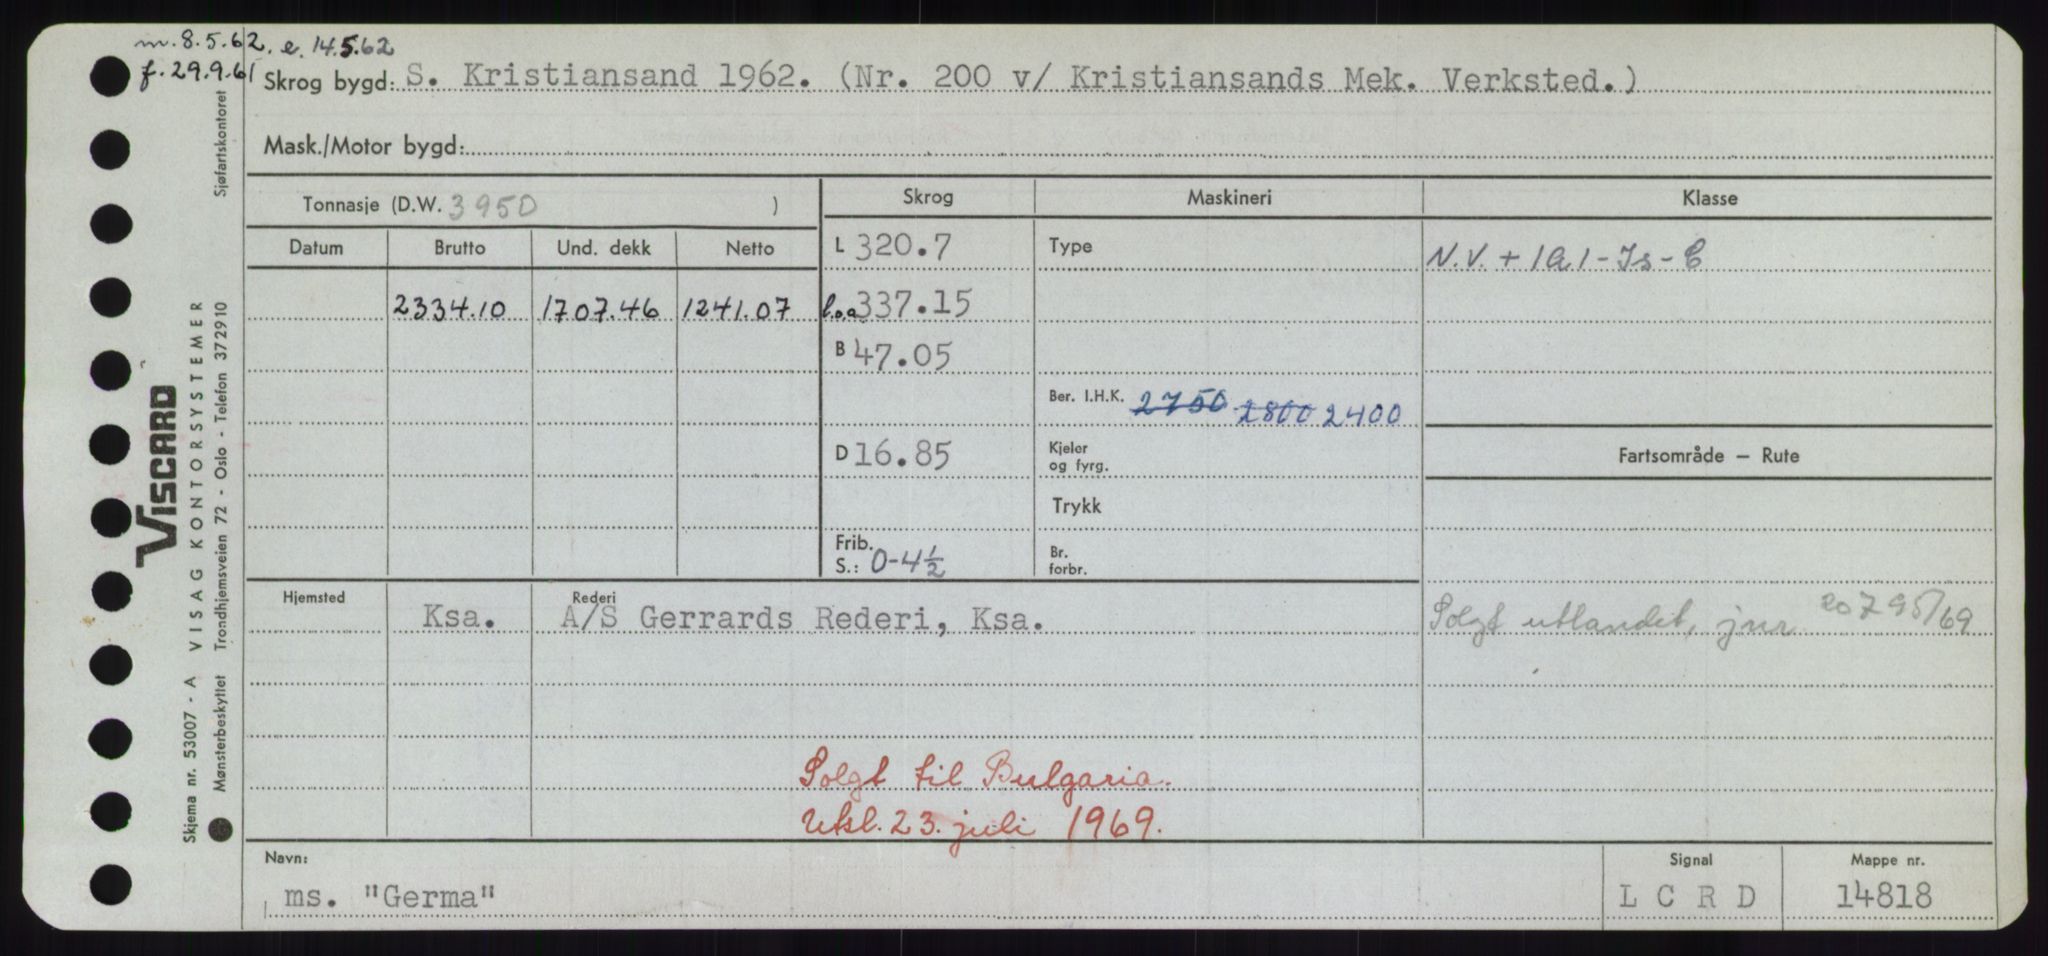 m. 8.5.62. e. 14.5.62
f. 29.9.61
Skrog bygd: S. Kristiansand 1962. (Nr. 200 v/ Kristiansands Mek. Verksted.)
Mask./Motor bygd:
Tonnasje (D.W. 3950 )
Skrog Maskineri Klasse
Datum Brutto Und. dekk Netto
L 320.7 Type N.V. + 1A1-Is-C
2334.10 1707.46 1241.07 l.o.a 337.15
B 47.05
Ber. I.H.K. 2750 2800 2400
D 16.85 Kjeler og fyrg. Fartsområde — Rute
Trykk
Frib. S.: 0-4½ Br. forbr.
Hjemsted Rederi
Ksa. A/S Gerrards Rederi, Ksa. Solgt utlandet, jnr 20795/69
Solgt til Bulgaria.
Utsl. 23. juli 1969.
Navn: Signal Mappe nr.
ms. "Germa" L C R D 14818
VISCARD
Skjema nr. 53007 - A VISAG KONTORSYSTEMER
Mønsterbeskyttet Trondhjemsveien 72 - Oslo - Telefon 372910 Sjøfartskontoret